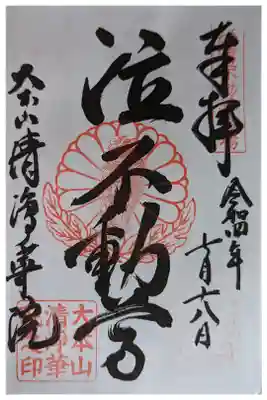 奉拝
令和四年
十月十八日
泣不動尊
大本山清浄華院
大本山
清浄華
院之印